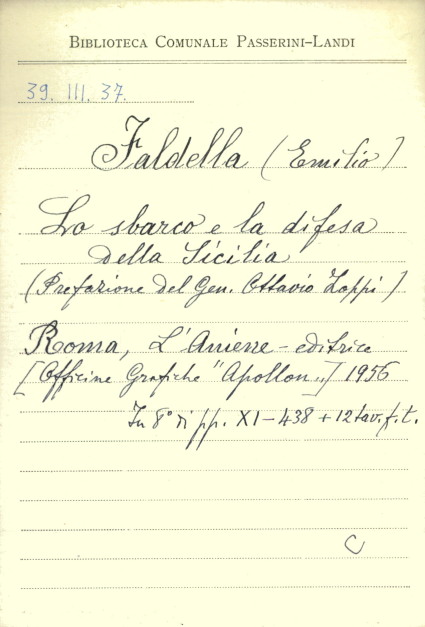 BIBLIOTECA COMUNALE PASSERINI-LANDI
39. III. 37.
Faldella (Emilio)
Lo sbarco e la difesa
della Sicilia
(Prefazione del Gen. Ottavio Zoppi)
Roma, L'Aniene - editrice
[Officine Grafiche "Apollon„] 1956
In 8° di pp. XI-438 + 12 tav. f. t.
C